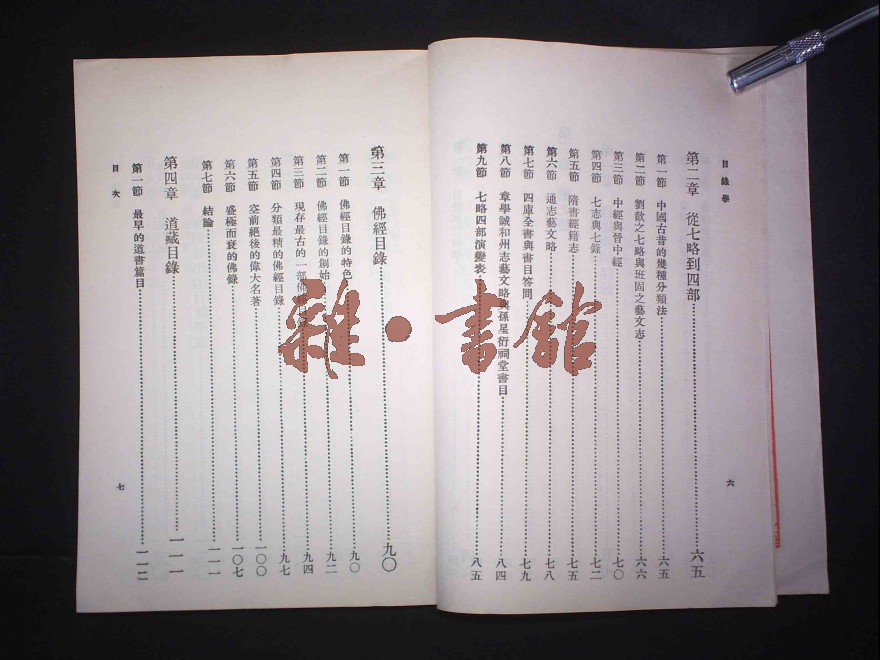 目錄學
第二章 從七略到四部……六五
第一節 中國古昔的幾種分類法……六五
第二節 劉歆之七略與班固之藝文志……六六
第三節 中經與晉中經……七〇
第四節 七志與七錄……七二
第五節 隋書經籍志……七五
第六節 通志藝文略……七八
第七節 四庫全書與書目答問……七九
第八節 章學誠和州志藝文略與孫星衍祠堂書目……八四
第九節 七略四部演變表……八五
六
第三章 佛經目錄……九〇
第一節 佛經目錄的特色……九〇
第二節 佛經目錄的創始……九二
第三節 現存最古的一部佛經目錄……九四
第四節 分類最精的佛經目錄……九七
第五節 空前絕後的偉大名著……一〇〇
第六節 盛極而衰的佛錄……一〇七
第七節 結論……一一一
第四章 道藏目錄……一一一
第一節 最早的道書篇目……一一二
目次
七
雜·書館